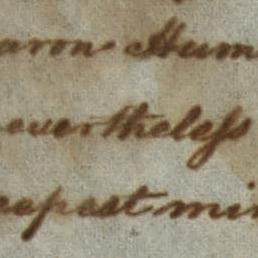 aron Hum
evertheless
eepest min